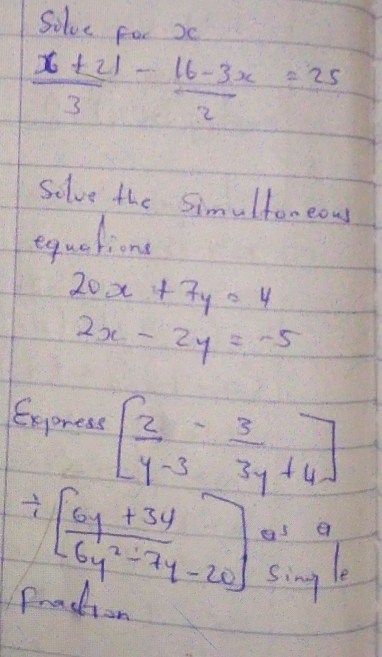 Solve for x
x + 21 / 3 - 16 - 3x / 2 = 25
Solve the simultaneous
equations
20x + 7y = 4
2x - 2y = -5
Express [2 / y - 3 - 3 / 3y + 4]
÷ [6y + 34 / 6y² - 7y - 20] as a single
fraction